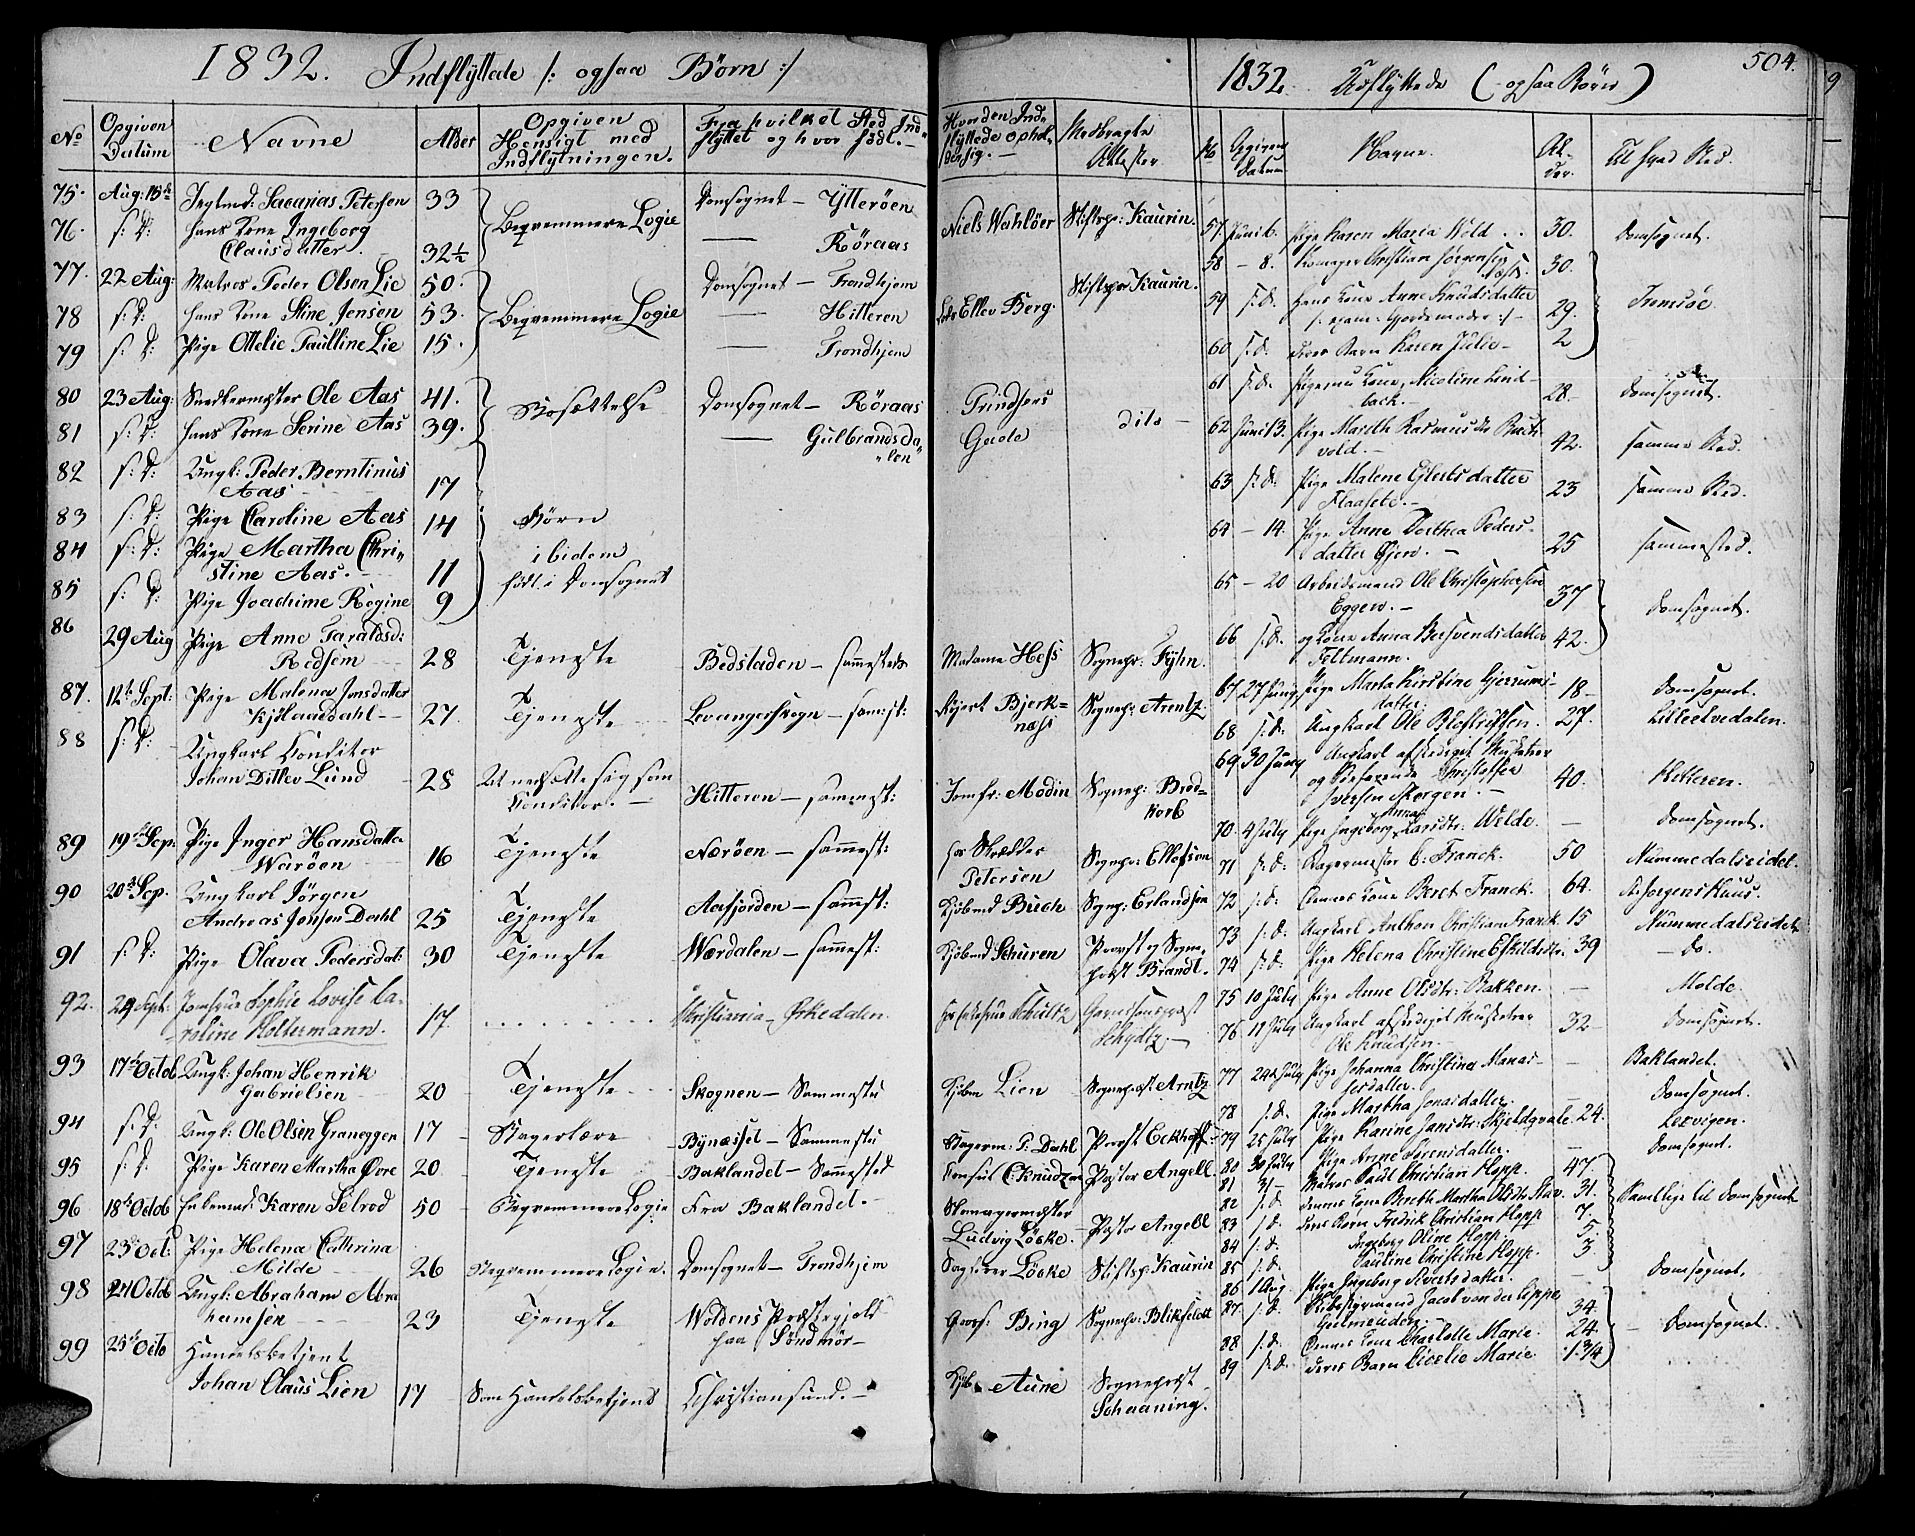 1832. Indflyttede /: ogsaa Børn :/
No Opgiven Datum Navne Alder Opgiven Hensigt med Indflytningen. Fra hvilket Sted Indflyttet og hvor født. Hvor den Indflyttede opholder sig. Medbragte Attester
75. Aug: 18de Sacarias Petersen 33 Beqvemmere Logie Domsognet – Ytterøen Niels Wahlöer Stiftspr: Kaurin.
76. s: D: hans Kone Ingeborg
Clausdatter. 32½ — Røraas
77. 22 Aug: Matros Peder Olsen Lie 50. Beqvemmere Logie Domsognet – Trondhjem Ellev Berg. Stiftspr Kaurin.
78 s: D: hans Kone Stine Jensen 53. — Hitteren
79 s: D: Pige Ottelie Paulline Lie 15. — Trondhjem
80 23 Aug: Snedkermester Ole Aas 41. Nedsættelse Domsognet – Røraas Prindsens Gade dito
81 s: D: hans Kone Serine Aas 39. — Gulbrandsdalen
82 s: D: Ungk: Peder Berntinus
Aas 17
83 s: D: Pige Caroline Aas 14 Børn
84 s: D: Pige Martha Christine Aas. 11 ibidem
85 s: D: Pige Joachime Regine 9 født i Domsognet
86 29 Aug Pige Anne Taraldsd:
Rodsem 28 Tjeneste Bedstaden – sammesteds Madame Hess Sognepr: Fyhn.
87. 12te Sept: Pige Malena Jonsdatter
27. Tjeneste Levangersogn – sammest: Bjerknæss Sognepr: Arentz.
88 s: D: Ungkarl Conditor
Johan Ditlev Lund 28 At nedsætte sig som Conditor. Hitteren – sammest: Jomfr: Modin Sognepr: Brodkorb
89 19de Sep: Pige Inger Hansdatter
Warøen 16 Tjeneste Nærøen – sammest: hos Skrædder Petersen Sognepr: Ellefsen
90 20de Sep. Ungkarl Jörgen
Andreas Jonsen Dahl 25 Tjeneste Aafjorden – sammst: Kjöbmd Buch Sognp: Erlandsen
91 s: D: Pige Olava Pedersdat: 30 Tjeneste Wærdalen – sammest: Kjöbmd Schuren Provst og Sognepræst Brandt.
92. 29 Sept: Jomfrue Sophie Lovise Caroline Holtermann. 17. Christiania – Orkedalen. Schultz Garnisonspræst Schydtz
93 17de Octob Ungk: Johan Henrik
Gabrielsen 20 Tjeneste Skognen – Sammestu Kjöbm Lien Sognepræst Arntz
94 s: D: Ungk: Ole Olsen Graneggen 17 Bagerlære Bynæsset – Sammestu Bagerm: P. Dahl Provst Eckhoff
95 s: D. Pige Karen Martha Øvre 20 Tjeneste Baklandet – Sammested Consul C: Knudzon Pastor Angell
96 18de Octob Enkemad: Karen Selrod 50 Beqvemmere Logie Fra Baklandet. Skomagermester Ludvig Löcke. Pastor Angell
97 23de Oct: Pige Helena Cathrina
Milde 26 Beqvemmere Logie. Domsognet – Trondhjem Löcke Stiftsp: Kaurin
98 24 Octob Ungk: Abraham Abrahamsen 23 Tjeneste Woldens Præstegjeld paa Søndmør Grosf: Bing Sognepr: Blikfeldt
99 25de Octo Handelsbetjent
Johan Claus Lien 17 Som Handelsbetjent Christiansund. Kjöb: Aune Sognepræst Schaaning.
504.
1832. Udflyttede (– ogsaa Børn)
No Opgiven Datum Navne. Alder. Til hvad Sted.
57. Juni 6. Pige Karen Maria Wold 30. Domsognet.
58 – 8. Christian Jörgensen 30. Tromsøe.
59 s: d. Hans Kone Anne Knudsdatter
/: exam: Gjordemoder :/ 29.
60 s: d. deres Barn Karen Julie 2
61 s: d. Kone Nicoline Lindback. 28. Domsognet.
62 Juni 13. Pige Mareth Rasmusdtr 42. samme Sted.
63 s: d. Pige Malene Ellertsdatter
23 samme Sted.
64 – 14. Pige Anne Dorthea Pedersdatter Gjen. 25 sammested.
65 – 20 Arbeidsmand Ole Christophersen
Eggen. 37 Domsognet.
66 s: d. og Kone Anna Berfvendsdatter
Feltmann. 42.
67 27 Juny Pige Marta Kirstine datter. 18 Domsognet.
68 s: d: Ungkarl Ole 27. Lilleelvedalen.
69 30 Juny Ungkarl afskediget Musketer
og Christopher
Iversen Morgen. 40. Hitteren.
70. 4 July Pige Ingeborg Anna Larsdtr: Welde. – Domsognet.
71 s: d: Bagermester C: Franck. 50 Nummedalseidet.
72 s: d: Dennes Kone Beret Franck. 64. Jørgenshuus.
73 s: d: Ungkarl Anthon Christian Franck 15 Nummedalseidet
74 s: d: Pige Helena Christine Eskildsdtr: 39 – do.
75 10 July Pige Anne Olsdtr: Bakken. – Molde.
76 11 July Ungkarl afskediget Musketer
Ole Knudsen. 32 Domsognet.
77 24de July Pige Johanna Christina Manasesdatter. – Baklandet.
78 s: d. Pige Martha Jonasdatter. Domsognet.
79 25 July Pige Karine Jansdtr: Skjeldgvale. 24. Lexvigen.
80 30 July Pige Anne Sörensdatter. – Domsognet.
81 31 – Matros Paul Christian Hopp. 47. Samtlige til Domsognet
82 s: d. dennes Kone Bereth Martha Olsdtr Stav. 31.
83 s: d. deres Børn Fredrik Christian Hopp 7.
84 s: d. Ingeborg Oline Hopp. 5.
85 s: d. Pauline Christine Hopp. 3
86 1 Aug Pige Ingeborg Sivertsdatter. – Domsognet,
87. s: d. Jacob von der Lippe
34. Domsognet.
88 s: d. Dennes Kone Charlotte Marie. 24
89 s: d. deres Barn Cicelie Marie 1 3/4